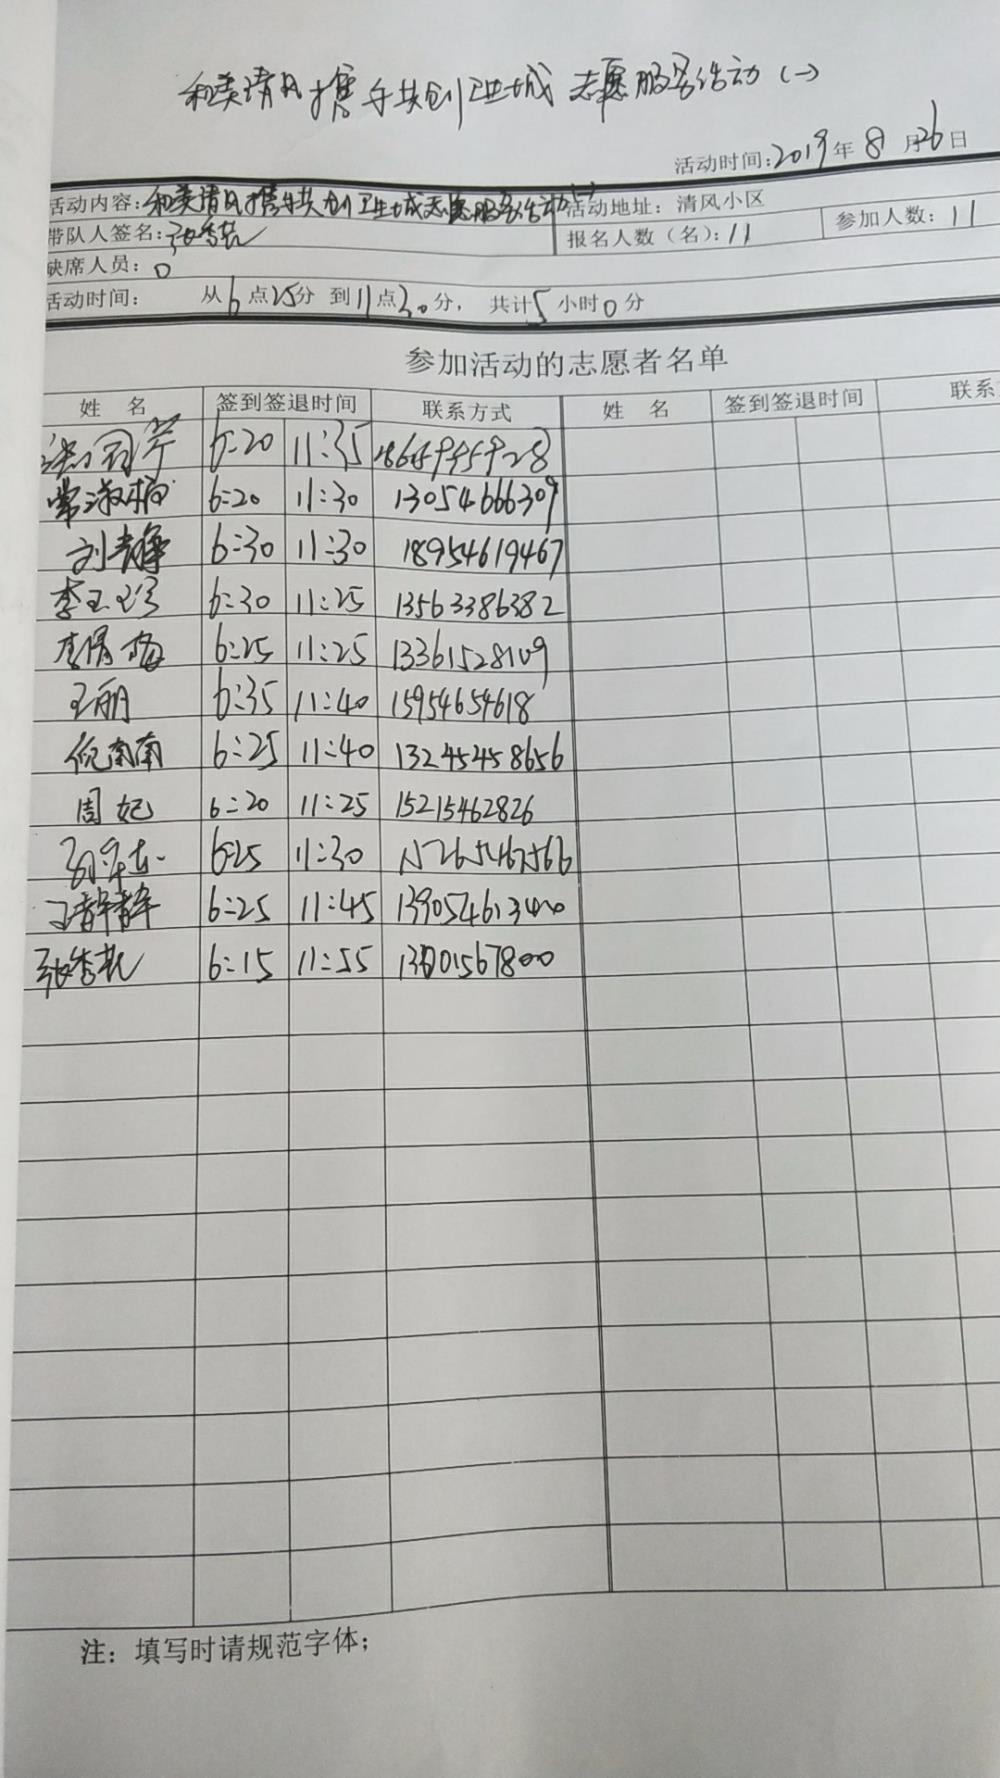 和美清风携手共创卫生城 志愿服务活动(一)
活动时间:2019年8月26日
活动内容:和美清风携手共创卫生城志愿服务活动(一) 活动地址:清风小区
带队人签名:张秀花 报名人数(名):11 参加人数:11
缺席人员:0
活动时间: 从6点25分 到11点30分, 共计5小时0分
参加活动的志愿者名单
姓 名 签到签退时间 联系方式 姓 名 签到签退时间 联系
6:20 11:35
常淑梅 6:20 11:30 13054666309
刘静 6:30 11:30 18954619467
李玉珍 6:30 11:25 13563386382
李清梅 6:25 11:25 13361528109
王丽 6:35 11:40 15954654618
倪南南 6:25 11:40 13245458656
周妃 6:20 11:25 15215462826
6:25 11:30 15265467566
王静静 6:25 11:45 139054613400
张秀花 6:15 11:55
注:填写时请规范字体;